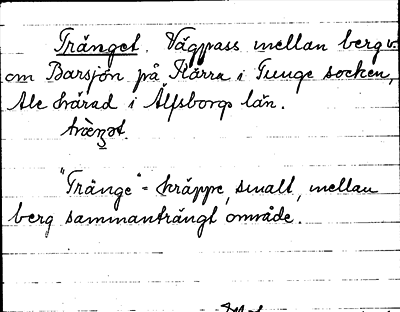 Tränget. Vägpass mellan berg v.
om Barsjön på Kärra i Tunge socken,
Ale härad i Älfsborgs län.
"Tränge" - kräppe, smalt, mellan
berg sammanträngt område.